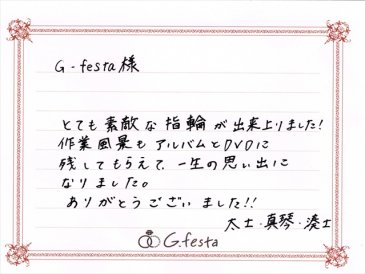 G-festa様
とても素敵な指輪が出来上りました!
作業風景もアルバムとDVDに
残してもらえて、一生の思い出に
なりました。
ありがとうございました!!
太士・真琴・湊士
G.festa